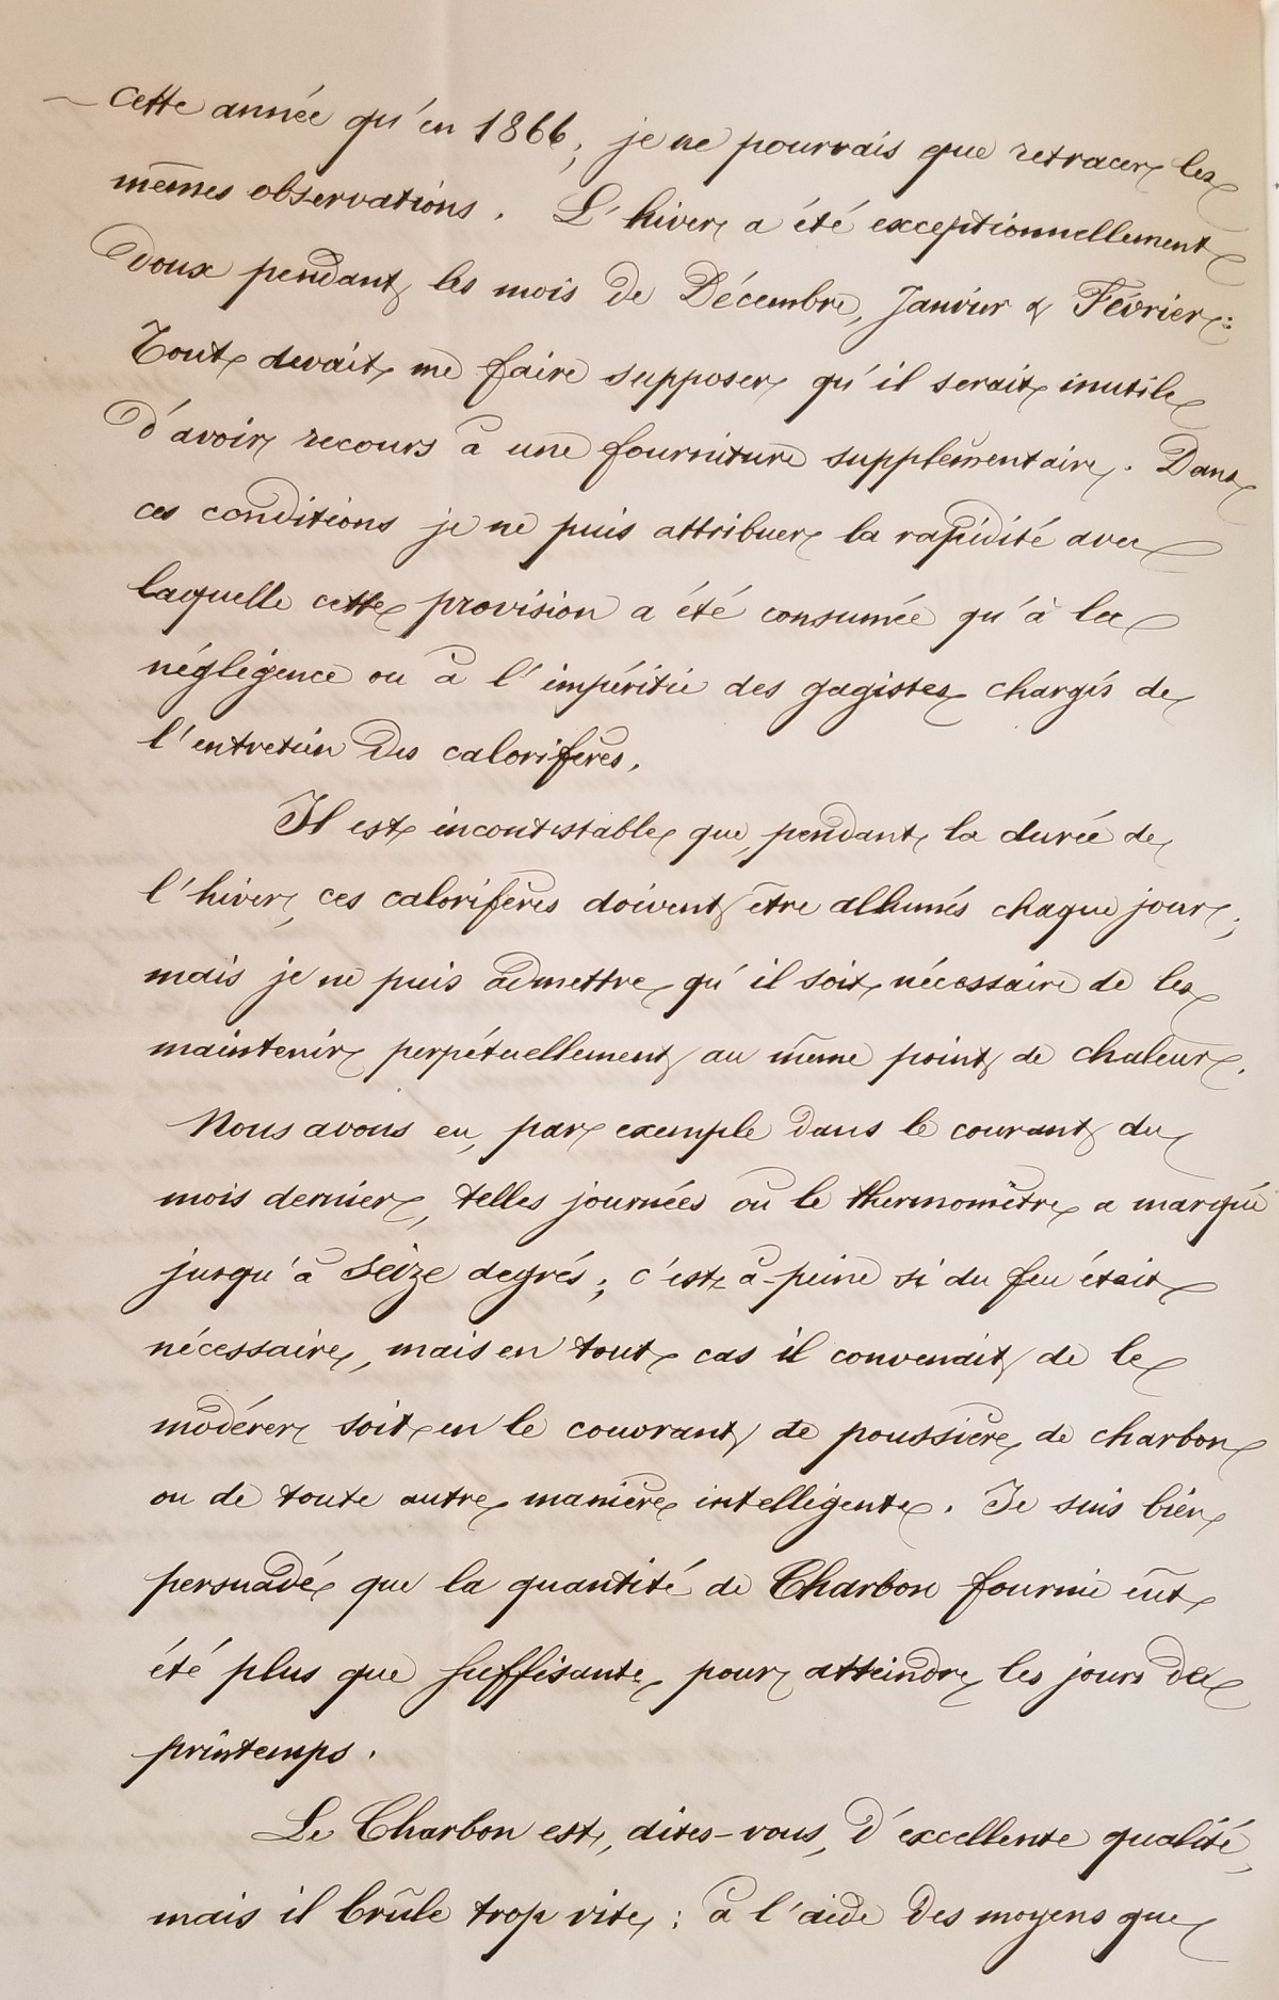 cette année qu'en 1866; je ne pourrais que retracer les
mêmes observations. L'hiver a été exceptionnellement
doux pendant les mois de Décembre, Janvier & Février:
Tout devait me faire supposer qu'il serait inutile
d'avoir recours à une fourniture supplémentaire. Dans
ces conditions je ne puis attribuer la rapidité avec
laquelle cette provision a été consumée qu'à la
négligence ou à l'impéritie des gagistes chargés de
l'entretien des calorifères.
Il est incontestable que, pendant la durée de
l'hiver, ces calorifères doivent être allumés chaque jour;
mais je ne puis admettre qu'il soit nécessaire de les
maintenir perpétuellement au même point de chaleur.
Nous avons eu, par exemple dans le courant du
mois dernier, telles journées où le thermomètre a marqué
jusqu'à seize degrés; c'est à-peine si du feu était
nécessaire, mais en tout cas il convenait de le
modérer soit en le couvrant de poussière de charbon
ou de toute autre manière intelligente. Je suis bien
persuadé que la quantité de Charbon fournie eût
été plus que suffisante pour atteindre les jours de
printemps.
Le Charbon est, dites-vous, d'excellente qualité,
mais il brûle trop vite; à l'aide des moyens que